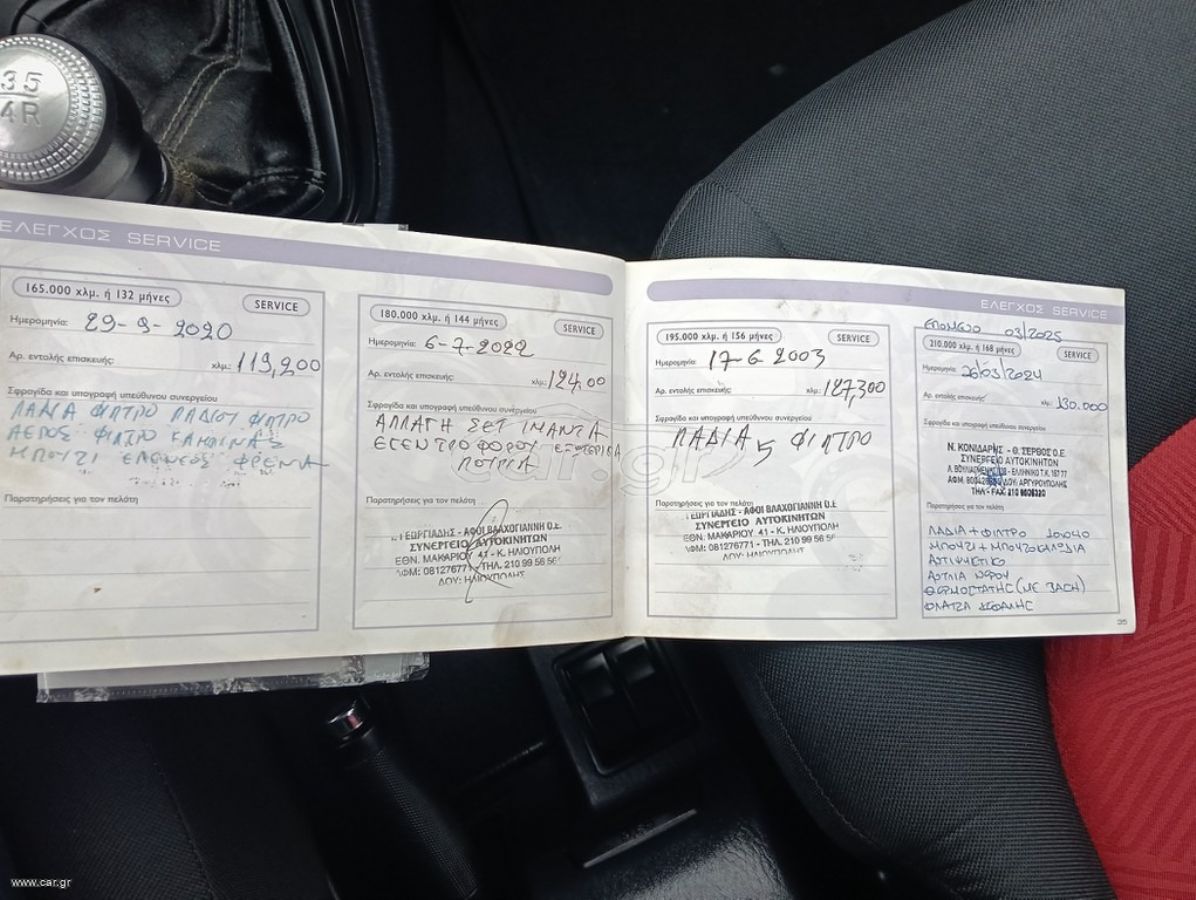 35
4R
ΕΛΕΓΧΟΣ SERVICE
165.000 χλμ. ή 132 μήνες
SERVICE
Ημερομηνία: 29-9-2020
Αρ. εντολής επισκευής: χλμ.: 119,200
Σφραγίδα και υπογραφή υπεύθυνου συνεργείου
ΛΑΔΙΑ ΦΙΛΤΡΟ ΛΑΔΙΟΥ ΦΙΛΤΡΟ
ΑΕΡΟΣ ΦΙΛΤΡΟ ΚΑΜΠΙΝΑΣ
ΜΠΟΥΖΙ ΕΛΕΝΧΟΣ ΦΡΕΝΑ
Παρατηρήσεις για τον πελάτη
180.000 χλμ. ή 144 μήνες
SERVICE
Ημερομηνία: 6-7-2022
Αρ. εντολής επισκευής: χλμ.: 124,00
Σφραγίδα και υπογραφή υπεύθυνου συνεργείου
ΑΛΛΑΓΗ ΣΕΤ ΙΜΑΝΤΑ
ΕΣΕΝΤΡΟΦΟΡΟΥ ΕΞΩΤΕΡΙΚΑ
Παρατηρήσεις για τον πελάτη
ΓΕΩΡΓΙΑΔΗΣ - ΑΦΟΙ ΒΛΑΧΟΓΙΑΝΝΗ Ο.Ε.
ΣΥΝΕΡΓΕΙΟ ΑΥΤΟΚΙΝΗΤΩΝ
ΕΘΝ. ΜΑΚΑΡΙΟΥ 41 - Κ. ΗΛΙΟΥΠΟΛΗ
ΑΦΜ: 081276771 - ΤΗΛ. 210 99 56 56
ΔΟΥ: ΗΛΙΟΥΠΟΛΗΣ
195.000 χλμ. ή 156 μήνες
SERVICE
Ημερομηνία: 17-6 2003
Αρ. εντολής επισκευής: χλμ.: 127,300
Σφραγίδα και υπογραφή υπεύθυνου συνεργείου
ΛΑΔΙΑ 5 ΦΙΛΤΡΟ
Παρατηρήσεις για τον πελάτη
ΓΕΩΡΓΙΑΔΗΣ - ΑΦΟΙ ΒΛΑΧΟΓΙΑΝΝΗ Ο.Ε
ΣΥΝΕΡΓΕΙΟ ΑΥΤΟΚΙΝΗΤΩΝ
ΕΘΝ. ΜΑΚΑΡΙΟΥ 41 - Κ. ΗΛΙΟΥΠΟΛΗ
ΑΦΜ: 081276771 - ΤΗΛ. 210 99 56 56
ΔΟΥ: ΗΛΙΟΥΠΟΛΗΣ
ΕΛΕΓΧΟΣ SERVICE
ΕΠΟΜΕΝΟ 03/2025
210.000 χλμ. ή 168 μήνες
SERVICE
Ημερομηνία: 26/03/2024
Αρ. εντολής επισκευής: χλμ.: 130.000
Σφραγίδα και υπογραφή υπεύθυνου συνεργείου
Ν. ΚΟΝΙΔΑΡΗΣ - Θ. ΣΕΡΒΟΣ Ο.Ε.
ΣΥΝΕΡΓΕΙΟ ΑΥΤΟΚΙΝΗΤΩΝ
Λ. ΒΟΥΛΙΑΓΜΕΝΗΣ - ΕΛΛΗΝΙΚΟ Τ.Κ. 167 77
ΑΦΜ. ΔΟΥ: ΑΡΓΥΡΟΥΠΟΛΗΣ
ΤΗΛ - FAX: 210
Παρατηρήσεις για τον πελάτη
ΛΑΔΙΑ + ΦΙΛΤΡΟ 10W40
ΜΠΟΥΖΙ + ΜΠΟΥΖΟΚΑΛΩΔΙΑ
ΑΝΤΙΨΗΚΤΙΚΟ
ΑΝΤΛΙΑ ΝΕΡΟΥ
ΘΕΡΜΟΣΤΑΤΗΣ (ΜΕ ΒΑΣΗ)
ΦΛΑΤΖΑ ΚΕΦΑΛΗΣ
35
car.gr
www.car.gr